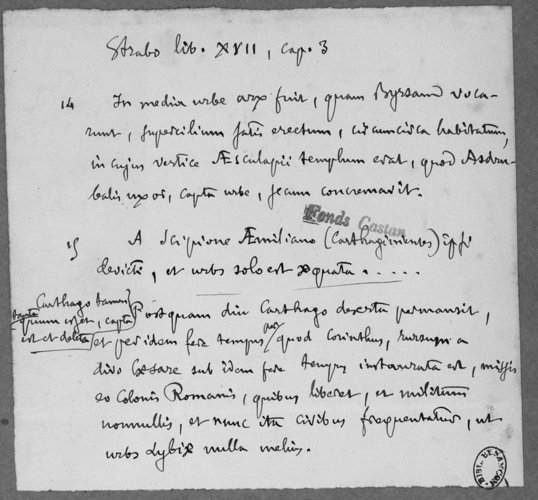 Strabo lib. XVII, cap. 3
14 In media urbe arx fuit, quam Byrsam voca-
runt, supercilium satis erectum, circumcirca habitatum,
in cujus vertice Æsculapii templum erat, quod Asdru-
balis uxor, capta urbe, secum concremavit.
Fonds Castan
15 A Scipione Æmiliano (Carthaginienses) ipsi
devicti, et urbs solo est æquata . . . . .
Carthago tamen
quum esset, capta
est et deleta
Postquam diu Carthago deserta permansit,
et per idem fere tempus per quod Corinthus, rursum a
divo Cæsare sub idem fere tempus instaurata est, missis
eo colonis Romanis, quibus liberet, et militum
nonnullis, et nunc ita civibus frequentatur, ut
urbs Lybiæ nulla melius.
BIBL. BESANÇON